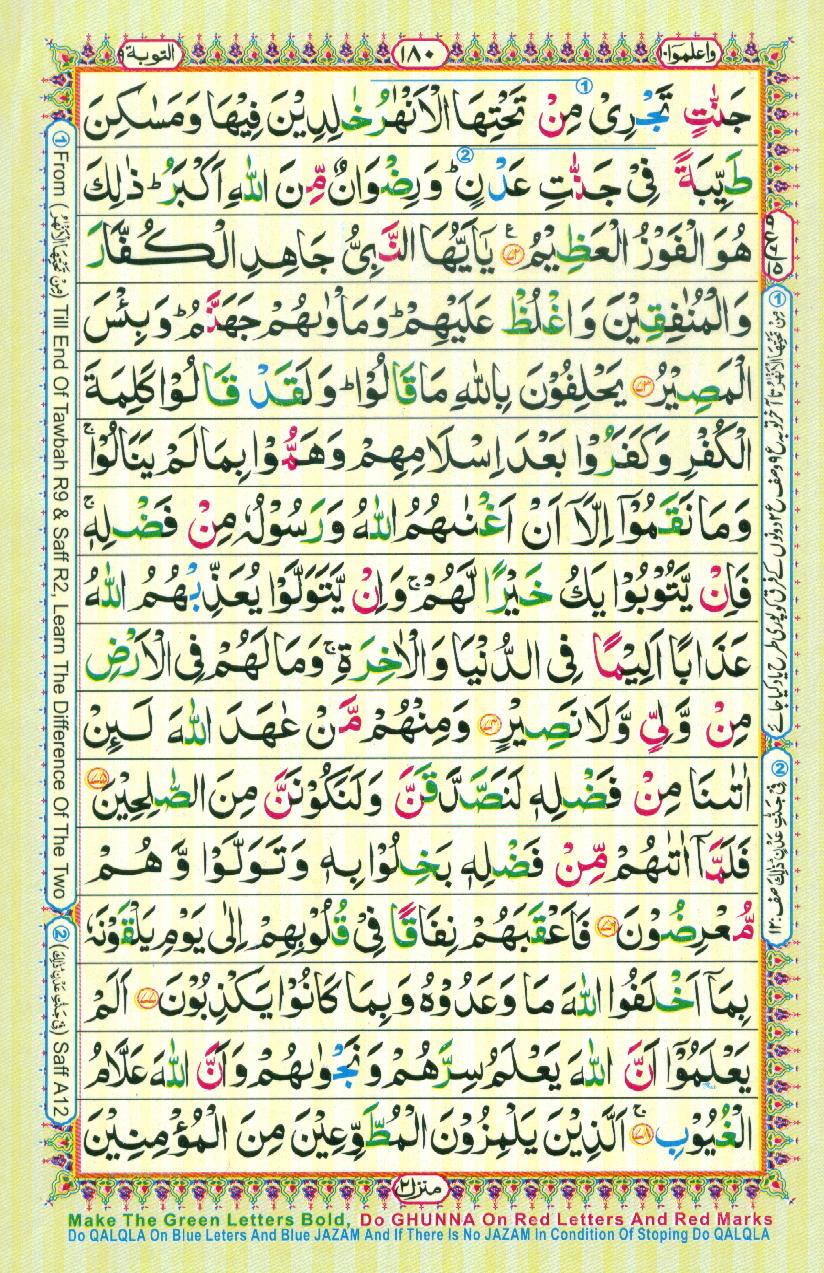 واعلموا۱۰
۱۸۰
التوبة۹
جَنّٰتٍ تَجْرِیْ مِنْ تَحْتِهَا الْاَنْهٰرُ خٰلِدِیْنَ فِیْهَا وَمَسٰكِنَ
طَیِّبَةً فِیْ جَنّٰتِ عَدْنٍ ؕ وَرِضْوَانٌ مِّنَ اللّٰهِ اَكْبَرُ ؕ ذٰلِكَ
هُوَ الْفَوْزُ الْعَظِیْمُ ۷۲ یٰۤاَیُّهَا النَّبِیُّ جَاهِدِ الْكُفَّارَ
وَالْمُنٰفِقِیْنَ وَاغْلُظْ عَلَیْهِمْ ؕ وَمَاْوٰىهُمْ جَهَنَّمُ ؕ وَبِئْسَ
الْمَصِیْرُ ۷۳ یَحْلِفُوْنَ بِاللّٰهِ مَا قَالُوْا ؕ وَلَقَدْ قَالُوْا كَلِمَةَ
الْكُفْرِ وَكَفَرُوْا بَعْدَ اِسْلَامِهِمْ وَهَمُّوْا بِمَا لَمْ یَنَالُوْا ۚ
وَمَا نَقَمُوْۤا اِلَّاۤ اَنْ اَغْنٰىهُمُ اللّٰهُ وَرَسُوْلُهٗ مِنْ فَضْلِهٖ ۚ
فَاِنْ یَّتُوْبُوْا یَكُ خَیْرًا لَّهُمْ ۚ وَاِنْ یَّتَوَلَّوْا یُعَذِّبْهُمُ اللّٰهُ
عَذَابًا اَلِیْمًا فِی الدُّنْیَا وَالْاٰخِرَةِ ۚ وَمَا لَهُمْ فِی الْاَرْضِ
مِنْ وَّلِیٍّ وَّلَا نَصِیْرٍ ۷۴ وَمِنْهُمْ مَّنْ عٰهَدَ اللّٰهَ لَىِٕنْ
اٰتٰىنَا مِنْ فَضْلِهٖ لَنَصَّدَّقَنَّ وَلَنَكُوْنَنَّ مِنَ الصّٰلِحِیْنَ ۷۵
فَلَمَّاۤ اٰتٰىهُمْ مِّنْ فَضْلِهٖ بَخِلُوْا بِهٖ وَتَوَلَّوْا وَّهُمْ
مُّعْرِضُوْنَ ۷۶ فَاَعْقَبَهُمْ نِفَاقًا فِیْ قُلُوْبِهِمْ اِلٰى یَوْمِ یَلْقَوْنَهٗ
بِمَاۤ اَخْلَفُوا اللّٰهَ مَا وَعَدُوْهُ وَبِمَا كَانُوْا یَكْذِبُوْنَ ۷۷ اَلَمْ
یَعْلَمُوْۤا اَنَّ اللّٰهَ یَعْلَمُ سِرَّهُمْ وَنَجْوٰىهُمْ وَاَنَّ اللّٰهَ عَلَّامُ
الْغُیُوْبِ ۷۸ ۚ اَلَّذِیْنَ یَلْمِزُوْنَ الْمُطَّوِّعِیْنَ مِنَ الْمُؤْمِنِیْنَ
① From (مِنْ تَحْتِهَا الْاَنْهٰرُ) Till End Of Tawbah R9 & Saff R2, Learn The Difference Of The Two
② (فِیْ جَنّٰتِ عَدْنٍ ذٰلِكَ) Saff A12
① مِنْ تَحْتِهَا الْاَنْهٰرُ تا آخر توبہ ع ۹ وصف ع ۲ دونوں کے فرق کو پوری طرح یاد کیا جائے
② فِیْ جَنّٰتِ عَدْنٍ ذٰلِكَ صف: ۱۲
منزل۲
Make The Green Letters Bold, Do GHUNNA On Red Letters And Red Marks
Do QALQLA On Blue Leters And Blue JAZAM And If There Is No JAZAM In Condition Of Stoping Do QALQLA